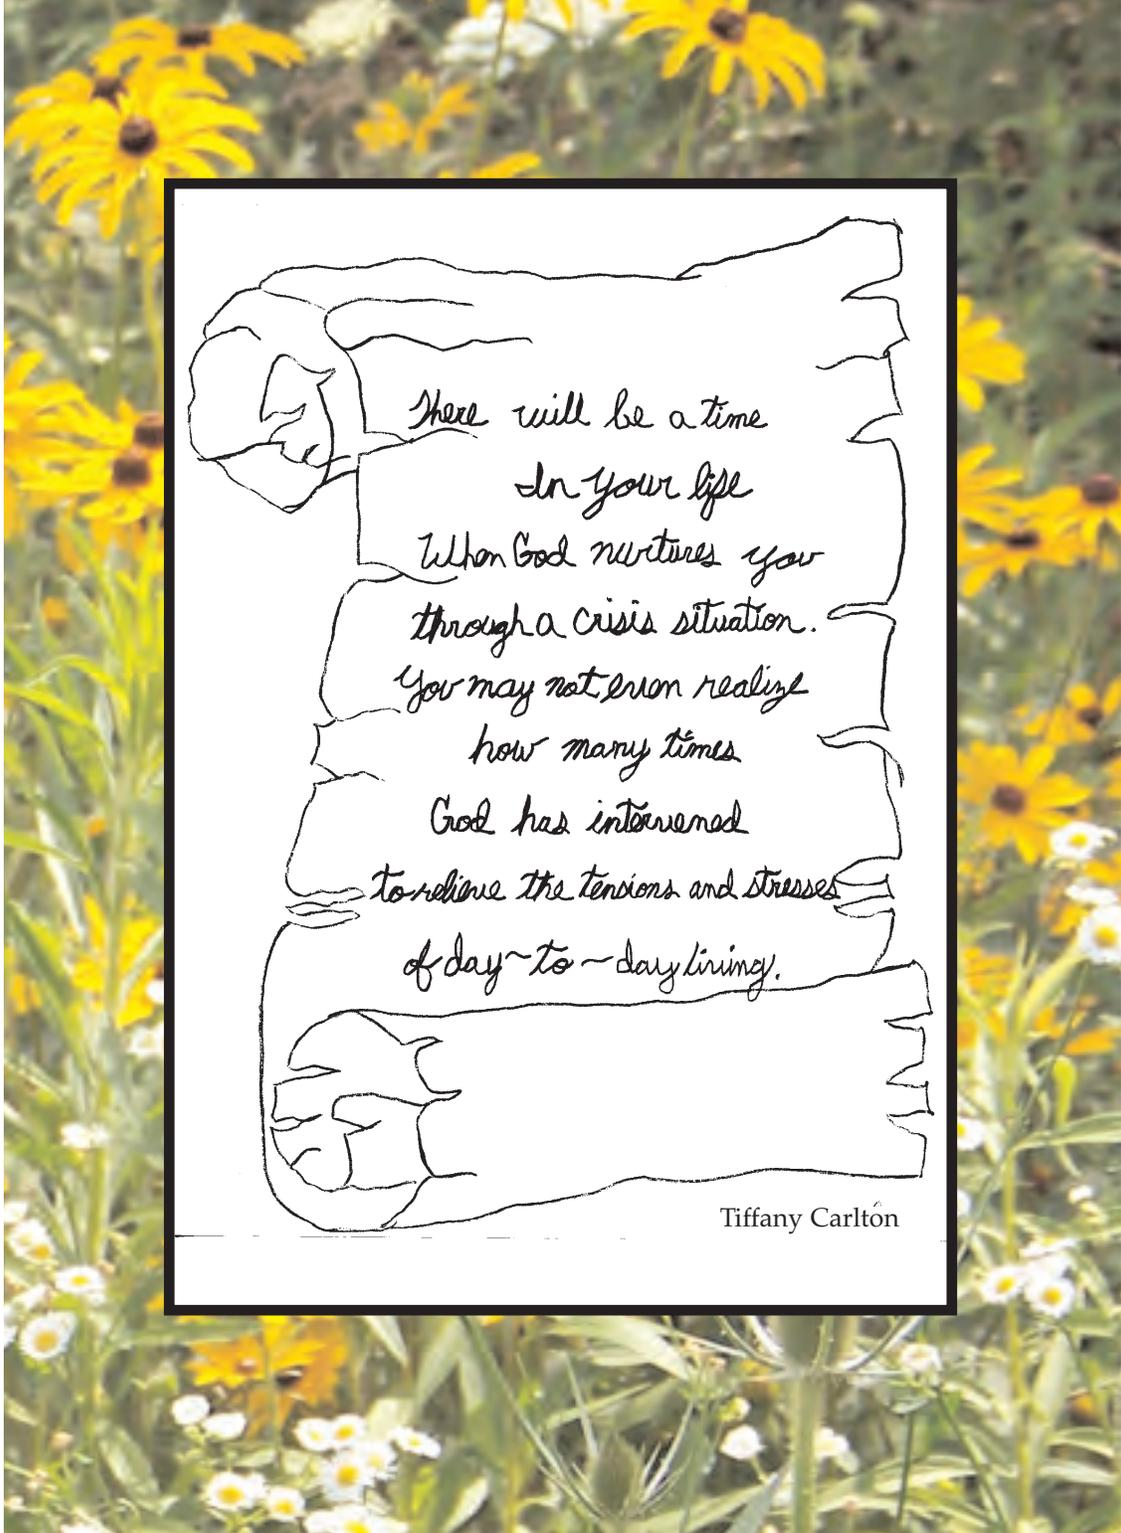 There will be a time
In your life
When God nurtures you
through a crisis situation.
You may not even realize
how many times
God has intervened
to relieve the tensions and stresses
of day~to~day living.
Tiffany Carlton